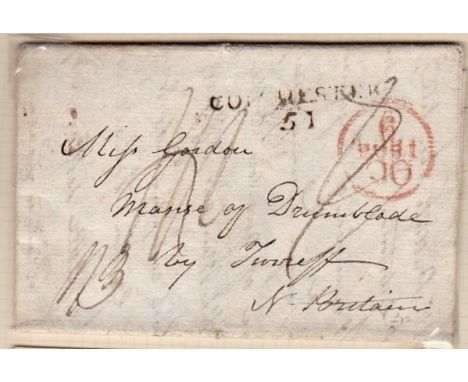 COLCHESTER
51
Miss Gordon
Manse of Drumblade
by Turreff
N. Britain